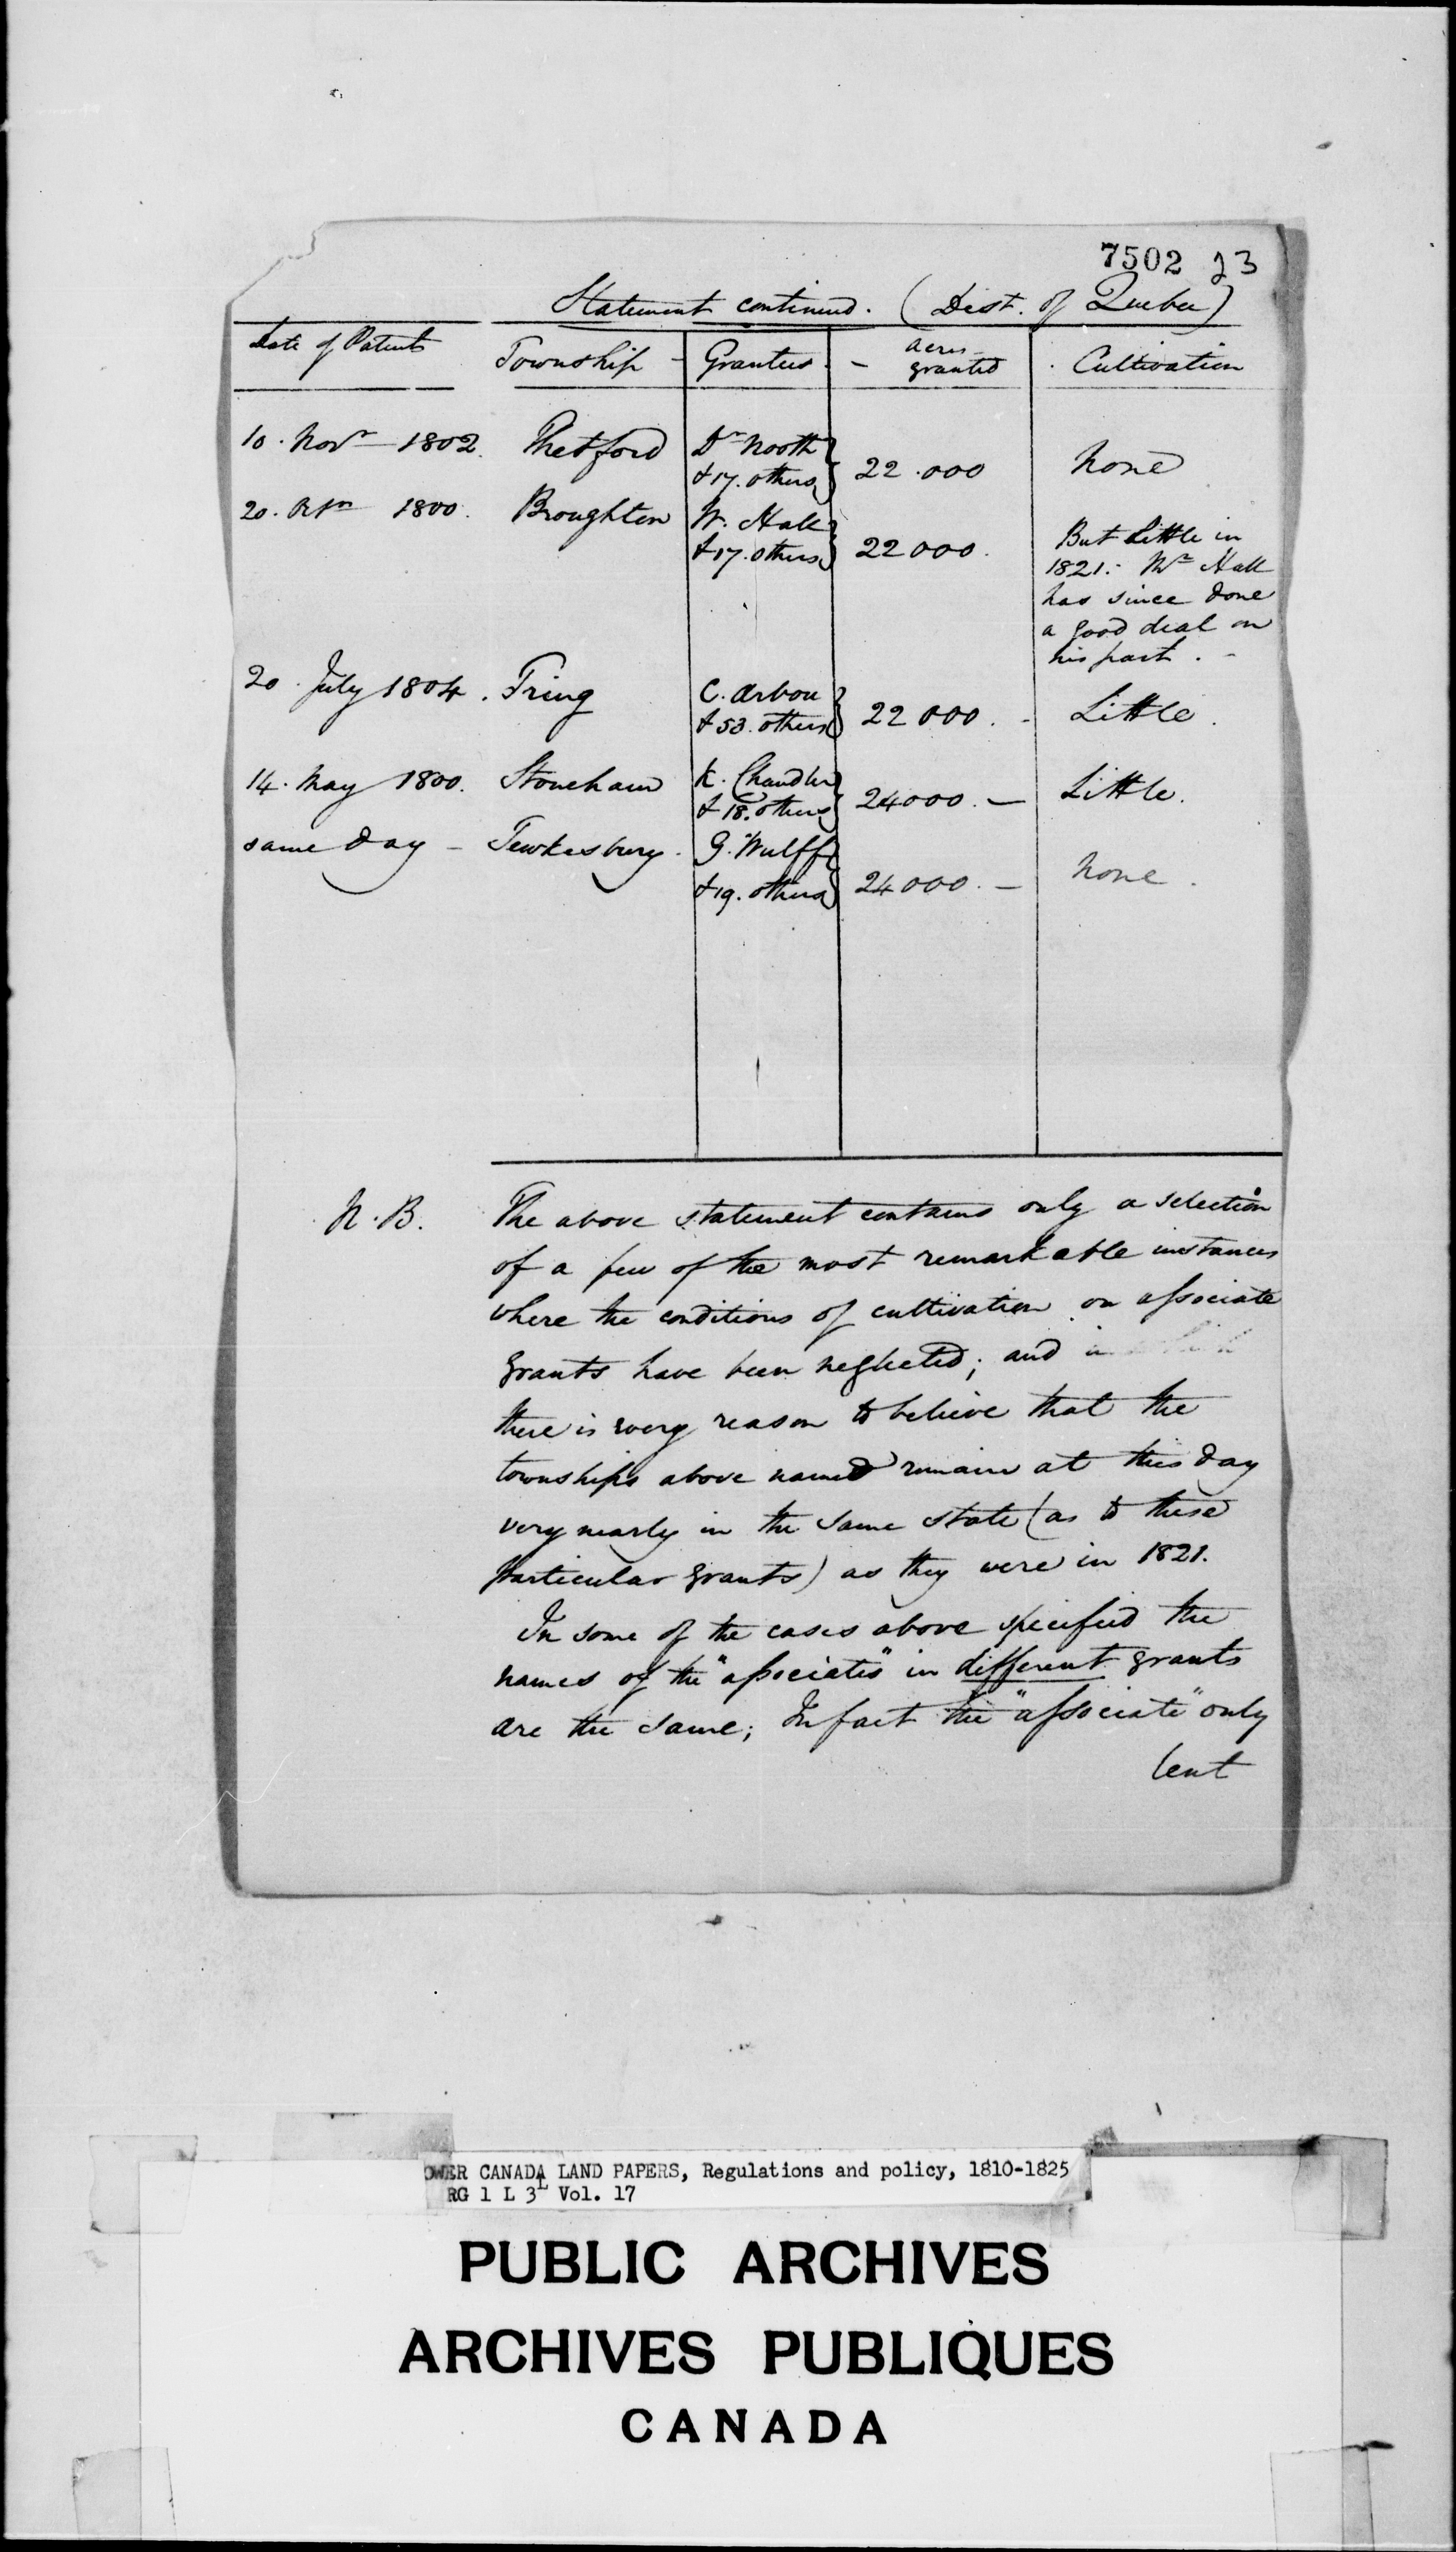 7502 23
Statement continued. (Dist. of Quebec)
Date of Patents Township - Grantees - acres granted . Cultivation
10. Novr 1802. Thetford Dr Nooth & 17. others} 22.000 None
20. Octr 1800. Broughton W. Hall & 17. others} 22000. But little in
1821.- Mr Hall
has since done
a good deal on
his part. -
20. July 1804. Tring C. Arbou & 53. others} 22000. - Little.
14. May 1800. Stoneham K. Chandler & 18. others} 24000. — Little.
same day - Tewkesbury. G. Wulff & 19. others} 24000. — None.
N.B. The above statement contains only a selection
of a few of the most remarkable instances
where the conditions of cultivation on associate
grants have been neglected; and
there is every reason to believe that the
townships above named remain at this day
very nearly in the same state (as to these
particular grants) as they were in 1821.
In some of the cases above specified the
names of the "associates" in different grants
are the same; In fact the "associate" only
lent
OWER CANADA LAND PAPERS, Regulations and policy, 1810-1825
RG 1 L 3L Vol. 17
PUBLIC ARCHIVES
ARCHIVES PUBLIQUES
CANADA